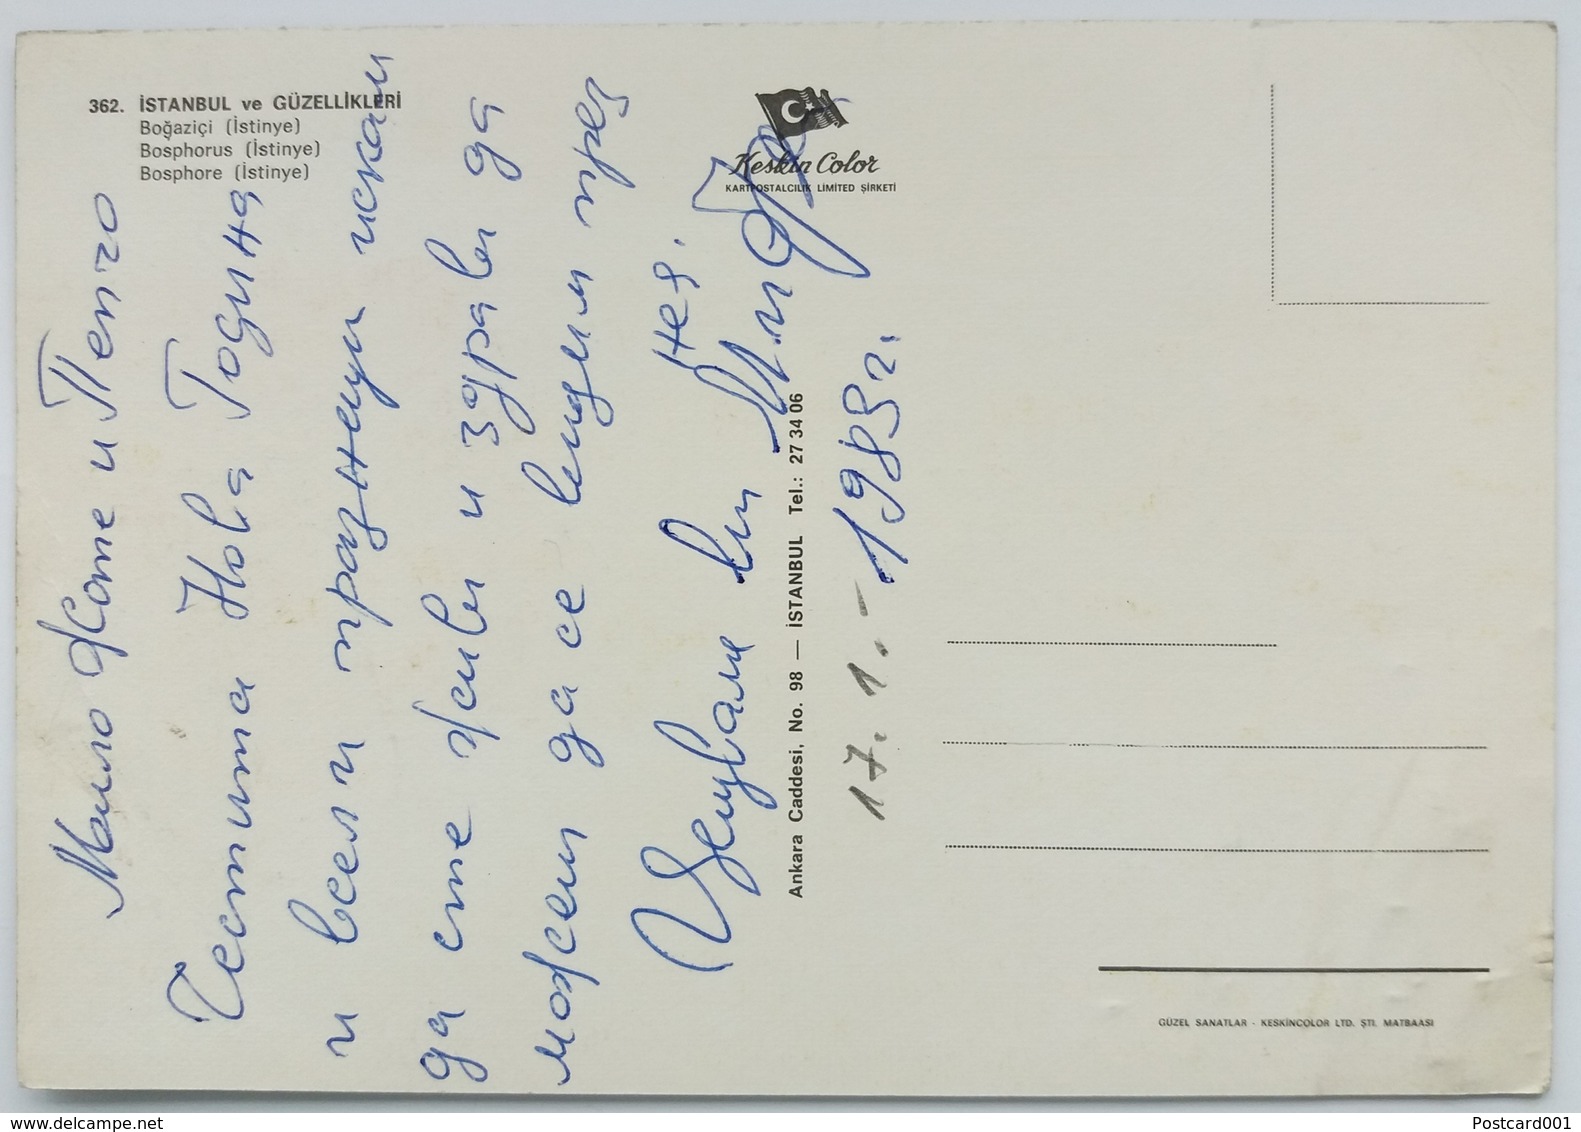 362. İSTANBUL ve GÜZELLİKLERİ
Boğaziçi (İstinye)
Bosphorus (İstinye)
Bosphore (İstinye)
Keskin Color
KARTPOSTALCILIK LIMITED ŞİRKETİ
Мило Жоте и Пепчо
Честита Нова Година
и весели празници искам
да сте живи и здрави да
можем да се видим през
нея.
Целувам ви
17. 1. - 1983 г.
Ankara Caddesi, No. 98 — İSTANBUL Tel.: 27 34 06
GÜZEL SANATLAR - KESKİNCOLOR LTD. ŞTİ. MATBAASI
Postcard001
delcampe.net